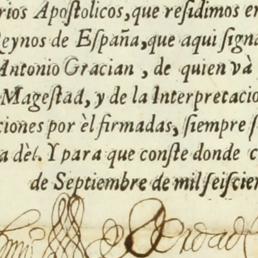 rios Apostolicos, que residimos en
Reynos de España, que aqui signa
Antonio Gracian, de quien và
Magestad, y de la Interpretacio
ciones por èl firmadas, siempre s
a dèl. Y para que conste donde c
de Septiembre de mil seiscien